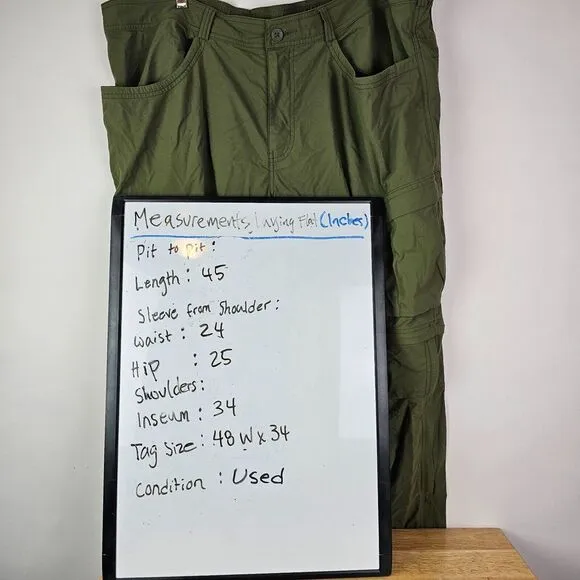 Measurements Laying Flat (Inches)
Pit to pit:
Length: 45
Sleeve from Shoulder:
Waist: 24
Hip : 25
Shoulders:
Inseum: 34
Tag Size: 48 W x 34
Condition : Used